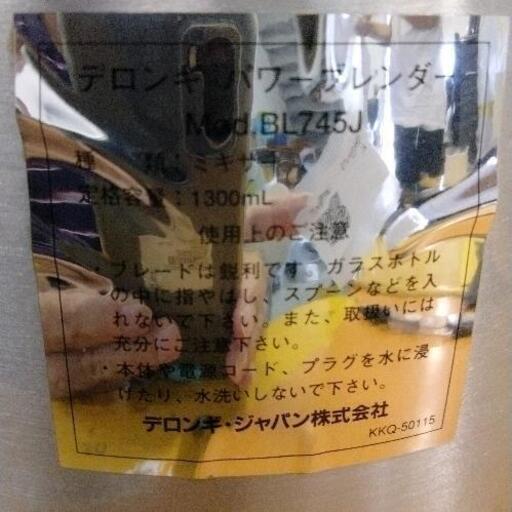 デロンギ パワーブレンダー
Mod.BL745J
種 類：ミキサー
定格容量：1300mL
使用上のご注意
・ブレードは鋭利です。ガラスボトル
の中に指やはし、スプーンなどを入
れないで下さい。また、取扱いには
充分にご注意下さい。
・本体や電源コード、プラグを水に浸
けたり、水洗いしないで下さい。
デロンギ・ジャパン株式会社
KKQ-50115